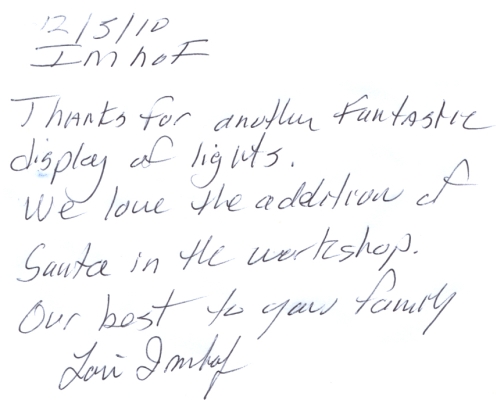 12/5/10
Imhof
Thanks for another Fantastic
display of lights.
We love the addition of
Santa in the workshop.
Our best to your family
Lori Imhof